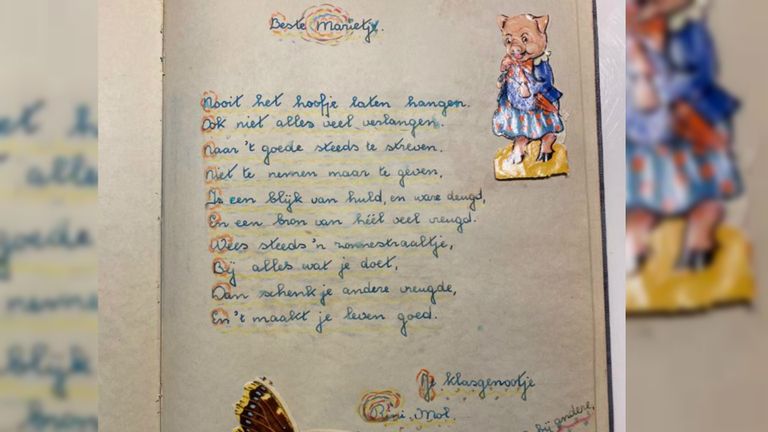 Beste Marietje.
Nooit het hoofje laten hangen.
Ook niet alles veel verlangen.
Naar 't goede steeds te streven.
Niet te nemen maar te geven,
Is een blijk van huld, en ware deugd,
En een bron van héél veel vreugd.
Wees steeds 'n zonnestraaltje,
Bij alles wat je doet,
Dan schenk je andere vreugde,
En 't maakt je leven goed.
Je klasgenootje
Rini Mol.
bij andere,